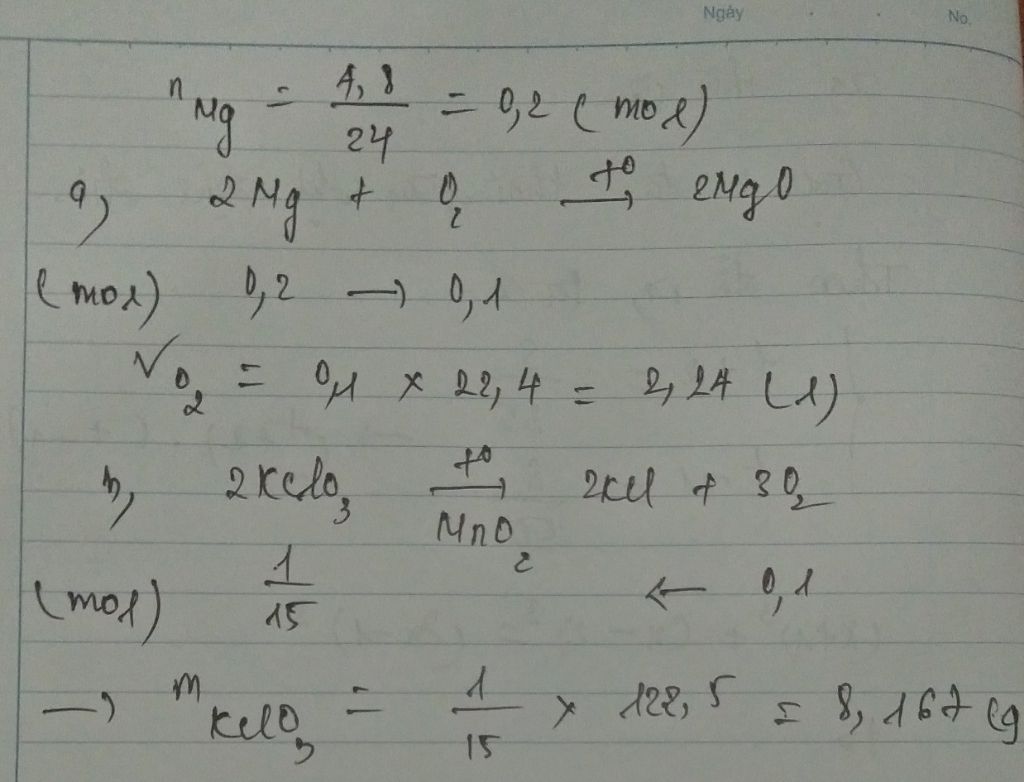 Ngày No.
nMg = 4,8/24 = 0,2 (mol)
a, 2Mg + O₂ →(t°) 2MgO
(mol) 0,2 → 0,1
VO₂ = 0,1 × 22,4 = 2,24 (l)
b, 2KClO₃ →(t°, MnO₂) 2KCl + 3O₂
(mol) 1/15 ← 0,1
→ mKClO₃ = 1/15 × 122,5 = 8,167 (g